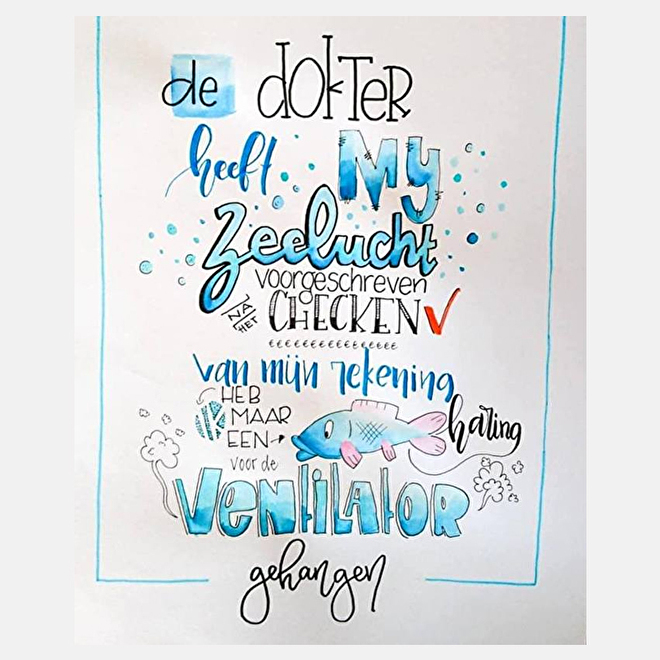 de dokter
heeft My
Zeelucht
voorgeschreven
NA HET CHECKEN
€€€€€€€€€€€€€€€€
van mijn rekening
HEB
MAAR
EEN haring
voor de
Ventilator
gehangen